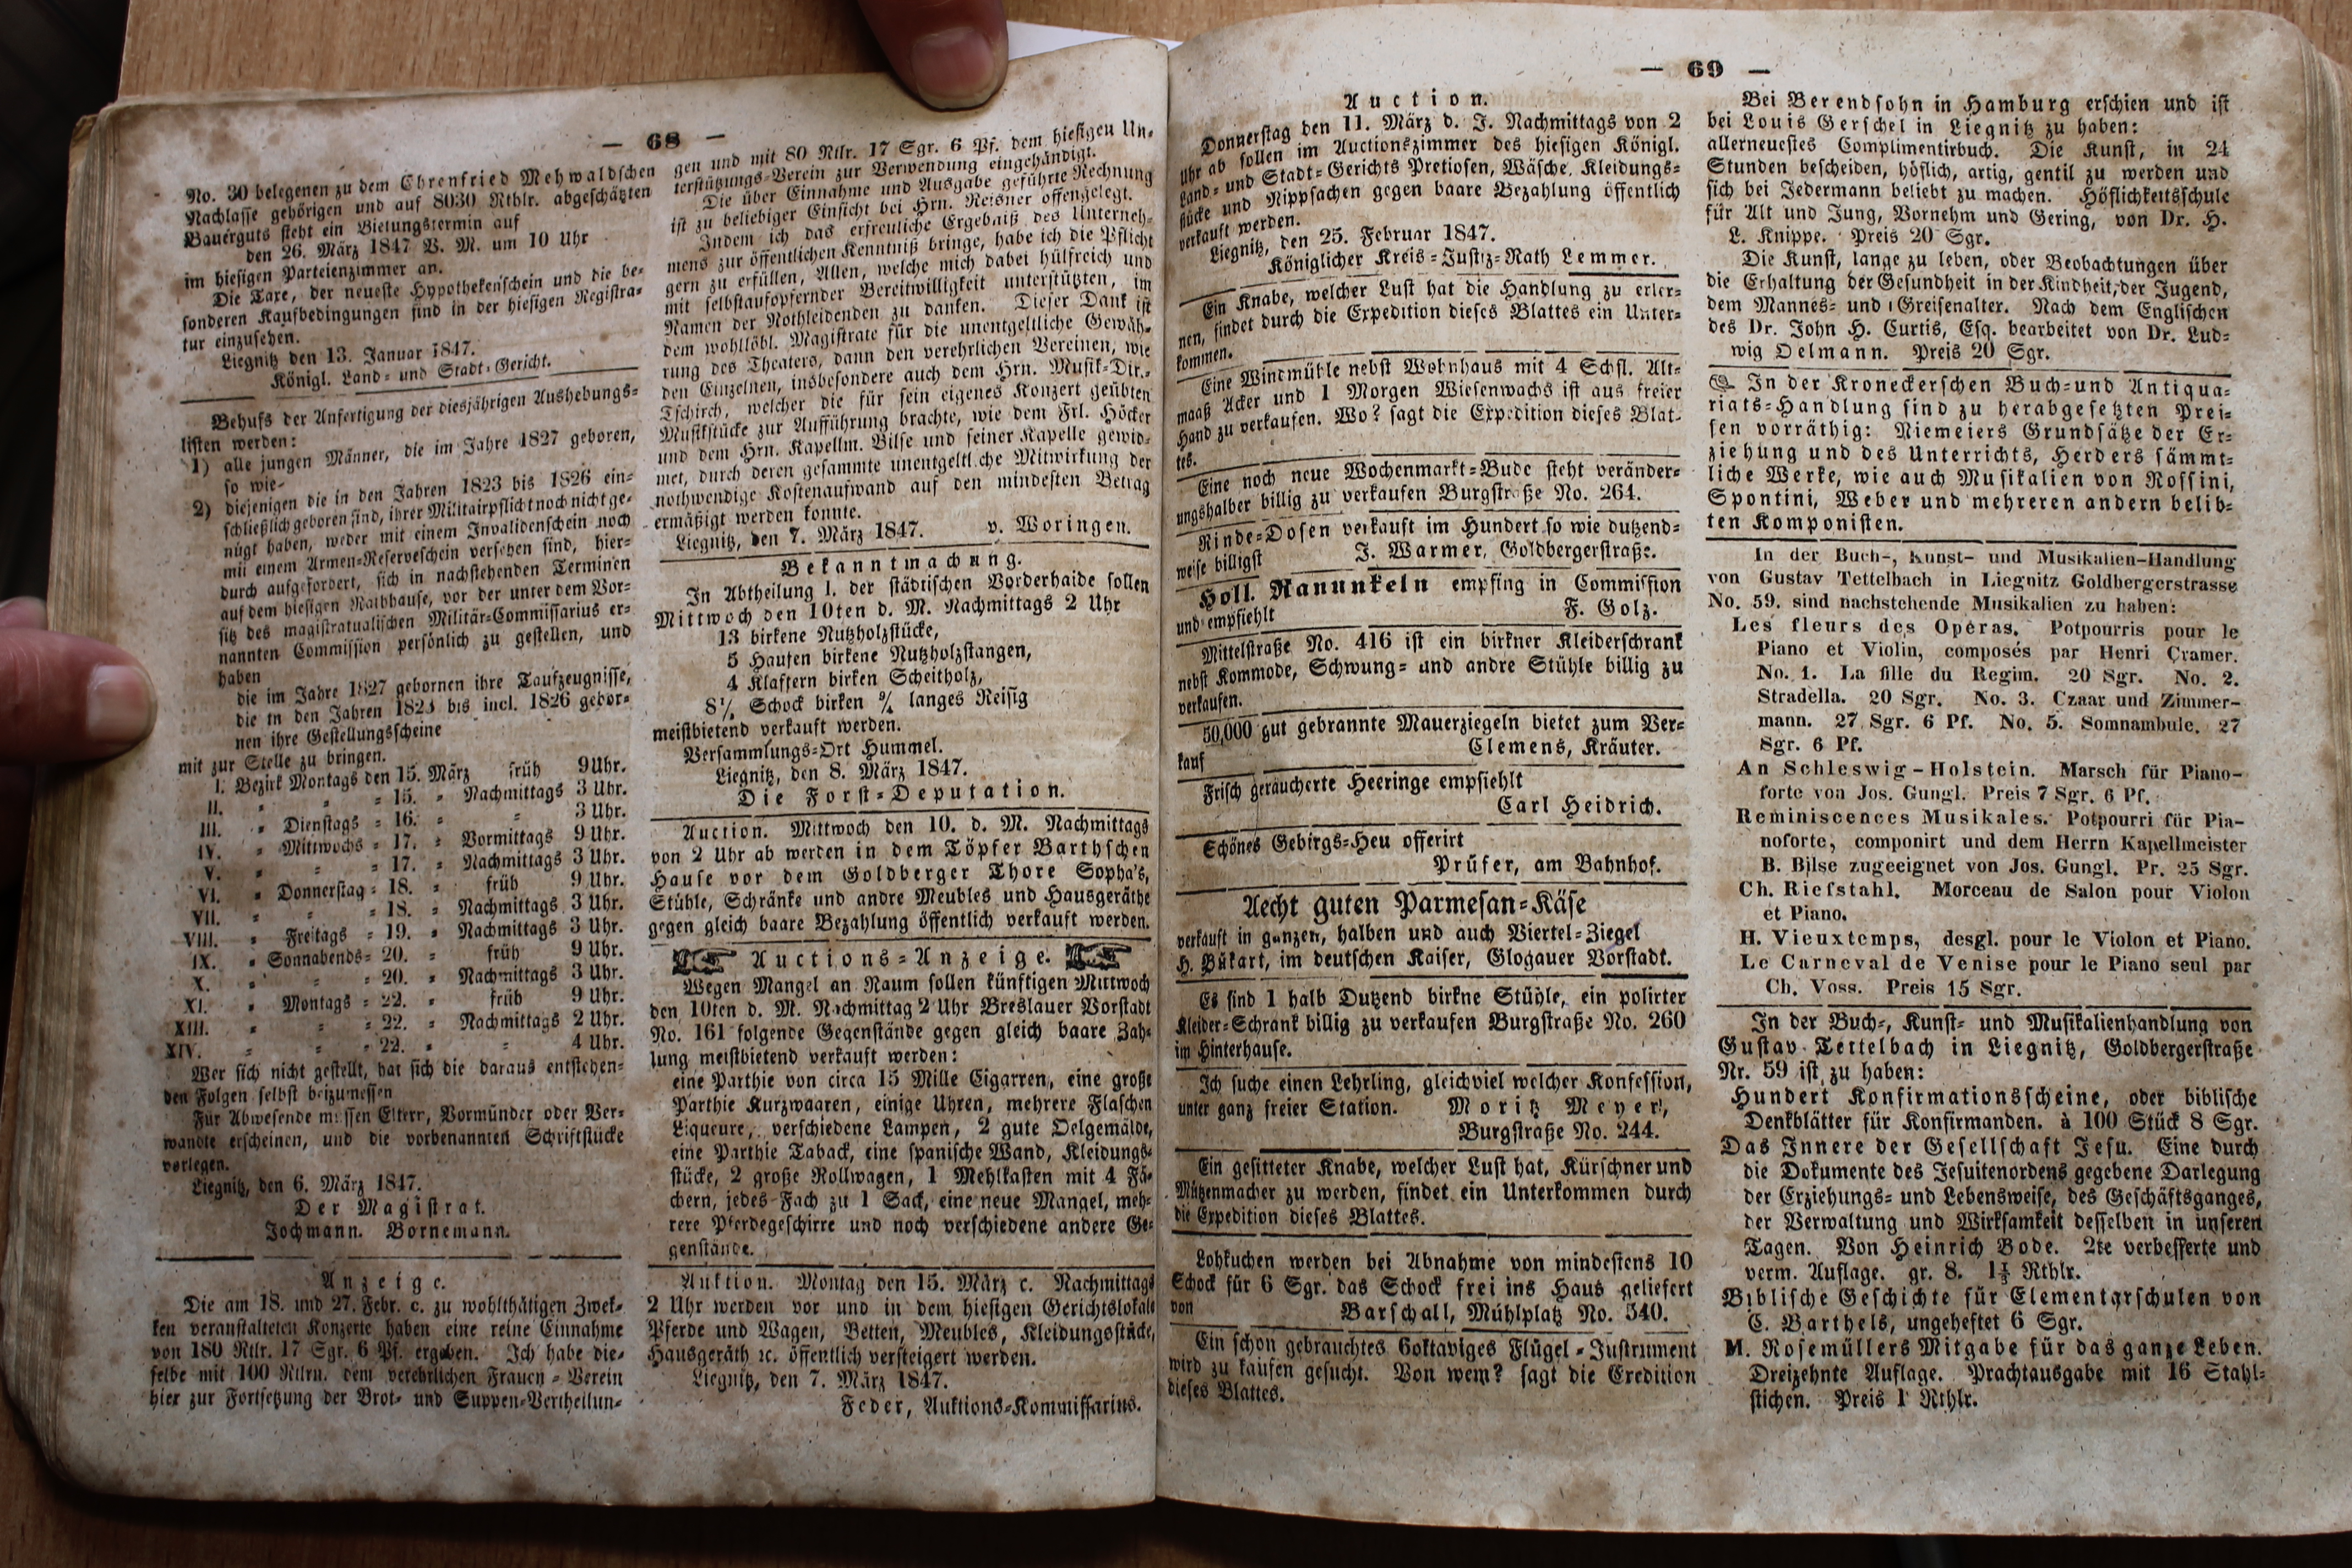 — 68 —
No. 30 belegenen zu dem Ehrenfried Mehwaldschen
Nachlasse gehörigen und auf 8030 Rthlr. abgeschätzten
Bauerguts steht ein Bietungstermin auf
den 26. März 1847 V. M. um 10 Uhr
im hiesigen Parteienzimmer an.
Die Taxe, der neueste Hypothekenschein und die be-
sonderen Kaufbedingungen sind in der hiesigen Registra-
tur einzusehen.
Liegnitz den 13. Januar 1847.
Königl. Land- und Stadt-Gericht.
Behufs der Anfertigung der diesjährigen Aushebungs-
listen werden:
1) alle jungen Männer, die im Jahre 1827 geboren,
so wie-
2) diejenigen die in den Jahren 1823 bis 1826 ein-
schließlich geboren sind, ihrer Militairpflicht noch nicht ge-
nügt haben, weder mit einem Invalidenschein noch
mit einem Armen-Reserveschein versehen sind, hier-
durch aufgefordert, sich in nachstehenden Terminen
auf dem hiesigen Rathhause, vor der unter dem Vor-
sitz des magistratualischen Militär-Commissarius er-
nannten Commission persönlich zu gestellen, und
haben
die im Jahre 1827 gebornen ihre Taufzeugnisse,
die in den Jahren 1823 bis incl. 1826 gebor-
nen ihre Gestellungsscheine
mit zur Stelle zu bringen.
I. Bezirk Montags den 15. März früh 9 Uhr.
II. = = = 15. = Nachmittags 3 Uhr.
III. = Dienstags = 16. = = 3 Uhr.
IV. = Mittwochs = 17. = Vormittags 9 Uhr.
V. = = = 17. = Nachmittags 3 Uhr.
VI. = Donnerstag = 18. = früh 9 Uhr.
VII. = = = 18. = Nachmittags 3 Uhr.
VIII. = Freitags = 19. = Nachmittags 3 Uhr.
IX. = Sonnabends = 20. = früh 9 Uhr.
X. = = = 20. = Nachmittags 3 Uhr.
XI. = Montags = 22. = früh 9 Uhr.
XIII. = = = 22. = Nachmittags 2 Uhr.
XIV. = = = 22. = = 4 Uhr.
Wer sich nicht gestellt, hat sich die daraus entstehen-
den Folgen selbst beizumessen
Für Abwesende müssen Eltern, Vormünder oder Ver-
wandte erscheinen, und die vorbenannten Schriftstücke
vorlegen.
Liegnitz, den 6. März 1847.
Der Magistrat.
Jochmann. Bornemann.
Anzeige.
Die am 18. und 27. Febr. c. zu wohlthätigen Zwek-
ken veranstalteten Konzerte haben eine reine Einnahme
von 180 Rtlr. 17 Sgr. 6 Pf. ergeben. Ich habe die-
selbe mit 100 Rtlrn. dem verehrlichen Frauen-Verein
hier zur Fortsetzung der Brot- und Suppen-Vertheilun-
gen und mit 80 Rtlr. 17 Sgr. 6 Pf. dem hiesigen Un-
terstützungs-Verein zur Verwendung eingehändigt.
Die über Einnahme und Ausgabe geführte Rechnung
ist zu beliebiger Einsicht bei Hrn. Reisner offengelegt.
Indem ich das erfreuliche Ergebniß des Unterneh-
mens zur öffentlichen Kenntniß bringe, habe ich die Pflicht
gern zu erfüllen, Allen, welche mich dabei hülfreich und
mit selbstaufopfernder Bereitwilligkeit unterstützten, im
Namen der Nothleidenden zu danken. Dieser Dank ist
dem wohllöbl. Magistrate für die unentgeltliche Gewäh-
rung des Theaters, dann den verehrlichen Vereinen, wie
den Einzelnen, insbesondere auch dem Hrn. Musik-Dir.-
Tschirch, welcher die für sein eigenes Konzert geübten
Musikstücke zur Aufführung brachte, wie dem Frl. Höcker
und dem Hrn. Kapellm. Bilse und seiner Kapelle gewid-
met, durch deren gesammte unentgeltliche Mitwirkung der
nothwendige Kostenaufwand auf den mindesten Betrag
ermäßigt werden konnte.
Liegnitz, den 7. März 1847. v. Woringen.
Bekanntmachung.
In Abtheilung I. der städtischen Vorderhaide sollen
Mittwoch den 10ten d. M. Nachmittags 2 Uhr
13 birkene Nutzholzstücke,
5 Haufen birkene Nutzholzstangen,
4 Klaftern birken Scheitholz,
Schock birken langes Reisig
meistbietend verkauft werden.
Versammlungs-Ort Hummel.
Liegnitz, den 8. März 1847.
Die Forst-Deputation.
Auction. Mittwoch den 10. d. M. Nachmittags
von 2 Uhr ab werden in dem Töpfer Barthschen
Hause vor dem Goldberger Thore Sopha's,
Stühle, Schränke und andre Meubles und Hausgeräthe
gegen gleich baare Bezahlung öffentlich verkauft werden.
Auctions-Anzeige.
Wegen Mangel an Raum sollen künftigen Mittwoch
den 10ten d. M. Nachmittag 2 Uhr Breslauer Vorstadt
No. 161 folgende Gegenstände gegen gleich baare Zah-
lung meistbietend verkauft werden:
eine Parthie von circa 15 Mille Cigarren, eine große
Parthie Kurzwaaren, einige Uhren, mehrere Flaschen
Liqueure, verschiedene Lampen, 2 gute Oelgemälde,
eine Parthie Taback, eine spanische Wand, Kleidungs-
stücke, 2 große Rollwagen, 1 Mehlkasten mit 4 Fä-
chern, jedes Fach zu 1 Sack, eine neue Mangel, meh-
rere Pferdegeschirre und noch verschiedene andere Ge-
genstände.
Auktion. Montag den 15. März c. Nachmittags
2 Uhr werden vor und in dem hiesigen Gerichtslokale
Pferde und Wagen, Betten, Meubles, Kleidungsstücke,
Hausgeräth ꝛc. öffentlich versteigert werden.
Liegnitz, den 7. März 1847.
Feder, Auktions-Kommissarius.
— 69 —
Auction.
Donnerstag den 11. März d. J. Nachmittags von 2
Uhr ab sollen im Auctionszimmer des hiesigen Königl.
Land- und Stadt-Gerichts Pretiosen, Wäsche, Kleidungs-
stücke und Nippsachen gegen baare Bezahlung öffentlich
verkauft werden.
Liegnitz, den 25. Februar 1847.
Königlicher Kreis-Justiz-Rath Lemmer.
Ein Knabe, welcher Lust hat die Handlung zu erler-
nen, findet durch die Expedition dieses Blattes ein Unter-
kommen.
Eine Windmühle nebst Wohnhaus mit 4 Schfl. Alt-
maaß Acker und 1 Morgen Wiesenwachs ist aus freier
Hand zu verkaufen. Wo? sagt die Expedition dieses Blat-
tes.
Eine noch neue Wochenmarkt-Bude steht veränder-
ungshalber billig zu verkaufen Burgstraße No. 264.
Rinde-Dosen verkauft im Hundert so wie dutzend-
weise billigst J. Warmer, Goldbergerstraße.
Holl. Ranunkeln empfing in Commission
und empfiehlt F. Golz.
Mittelstraße No. 416 ist ein birkner Kleiderschrank
nebst Kommode, Schwung- und andre Stühle billig zu
verkaufen.
50,000 gut gebrannte Mauerziegeln bietet zum Ver-
kauf Clemens, Kräuter.
Frisch geräucherte Heeringe empfiehlt
Carl Heidrich.
Schönes Gebirgs-Heu offerirt
Prüfer, am Bahnhof.
Aecht guten Parmesan-Käse
verkauft in ganzen, halben und auch Viertel-Ziegel
H. Bükart, im deutschen Kaiser, Glogauer Vorstadt.
Es sind 1 halb Dutzend birkne Stühle, ein polirter
Kleider-Schrank billig zu verkaufen Burgstraße No. 260
im Hinterhause.
Ich suche einen Lehrling, gleichviel welcher Konfession,
unter ganz freier Station. Moritz Meyer,
Burgstraße No. 244.
Ein gesitteter Knabe, welcher Lust hat, Kürschner und
Mützenmacher zu werden, findet ein Unterkommen durch
die Expedition dieses Blattes.
Lohkuchen werden bei Abnahme von mindestens 10
Schock für 6 Sgr. das Schock frei ins Haus geliefert
von Barschall, Mühlplatz No. 540.
Ein schon gebrauchtes 6oktaviges Flügel-Instrument
wird zu kaufen gesucht. Von wem? sagt die Eredition
dieses Blattes.
Bei Berendsohn in Hamburg erschien und ist
bei Louis Gerschel in Liegnitz zu haben:
allerneuestes Complimentirbuch. Die Kunst, in 24
Stunden bescheiden, höflich, artig, gentil zu werden und
sich bei Jedermann beliebt zu machen. Höflichkeitsschule
für Alt und Jung, Vornehm und Gering, von Dr. H.
L. Knippe. Preis 20 Sgr.
Die Kunst, lange zu leben, oder Beobachtungen über
die Erhaltung der Gesundheit in der Kindheit, der Jugend,
dem Mannes- und Greisenalter. Nach dem Englischen
des Dr. John H. Curtis, Esq. bearbeitet von Dr. Lud-
wig Oelmann. Preis 20 Sgr.
In der Kroneckerschen Buch- und Antiqua-
riats-Handlung sind zu herabgesetzten Prei-
sen vorräthig: Niemeiers Grundsätze der Er-
ziehung und des Unterrichts, Herders sämmt-
liche Werke, wie auch Musikalien von Rossini,
Spontini, Weber und mehreren andern belib-
ten Komponisten.
In der Buch-, Kunst- und Musikalien-Handlung
von Gustav Tettelbach in Liegnitz Goldbergerstrasse
No. 59. sind nachstehende Musikalien zu haben:
Les fleurs des Opéras. Potpourris pour le
Piano et Violin, composés par Henri Cramer.
No. 1. La fille du Regim. 20 Sgr. No. 2.
Stradella. 20 Sgr. No. 3. Czaar und Zimmer-
mann. 27 Sgr. 6 Pf. No. 5. Somnambule. 27
Sgr. 6 Pf.
An Schleswig-Holstein. Marsch für Piano-
forte von Jos. Gungl. Preis 7 Sgr. 6 Pf.
Reminiscences Musikales. Potpourri für Pia-
noforte, componirt und dem Herrn Kapellmeister
B. Bilse zugeeignet von Jos. Gungl. Pr. 25 Sgr.
Ch. Riefstahl. Morceau de Salon pour Violon
et Piano.
H. Vieuxtemps, desgl. pour le Violon et Piano.
Le Carneval de Venise pour le Piano seul par
Ch. Voss. Preis 15 Sgr.
In der Buch-, Kunst- und Musikalienhandlung von
Gustav Tettelbach in Liegnitz, Goldbergerstraße
Nr. 59 ist zu haben:
Hundert Konfirmationsscheine, oder biblische
Denkblätter für Konfirmanden. à 100 Stück 8 Sgr.
Das Innere der Gesellschaft Jesu. Eine durch
die Dokumente des Jesuitenordens gegebene Darlegung
der Erziehungs- und Lebensweise, des Geschäftsganges,
der Verwaltung und Wirksamkeit desselben in unseren
Tagen. Von Heinrich Bode. 2te verbesserte und
verm. Auflage. gr. 8. Rthlr.
Biblische Geschichte für Elementarschulen von
C. Barthels, ungeheftet 6 Sgr.
M. Rosemüllers Mitgabe für das ganze Leben.
Dreizehnte Auflage. Prachtausgabe mit 16 Stahl-
stichen. Preis 1 Rthlr.